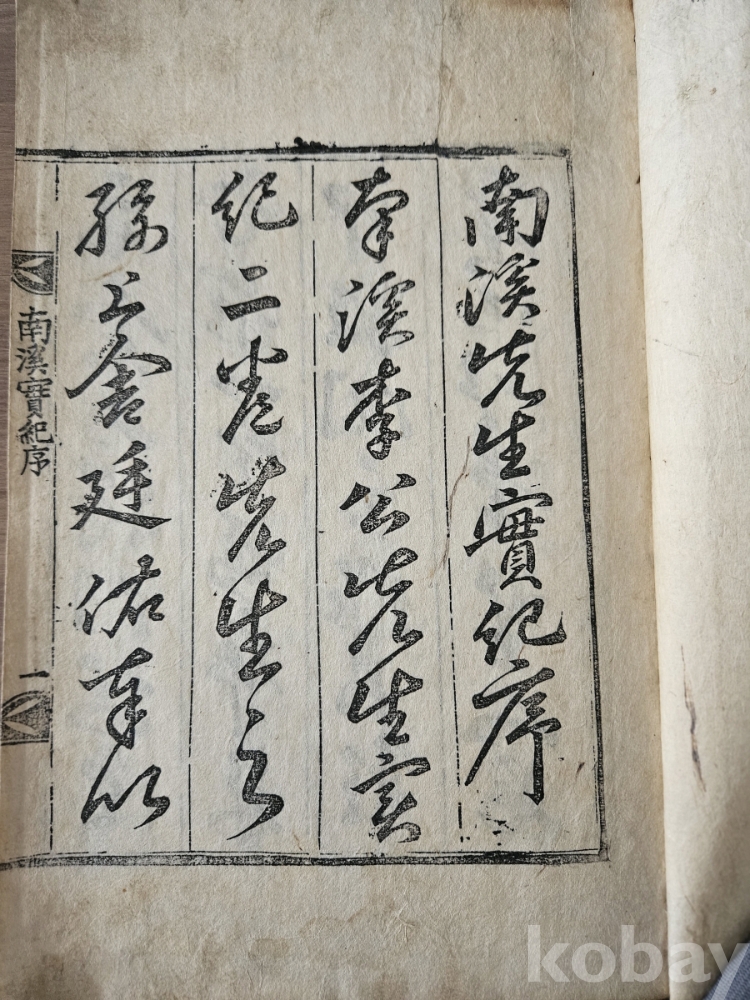 南溪先生實紀序
南溪李公先生實
紀二卷先生之
孫上舍廷佑奉以
南溪實紀序
一
kobay